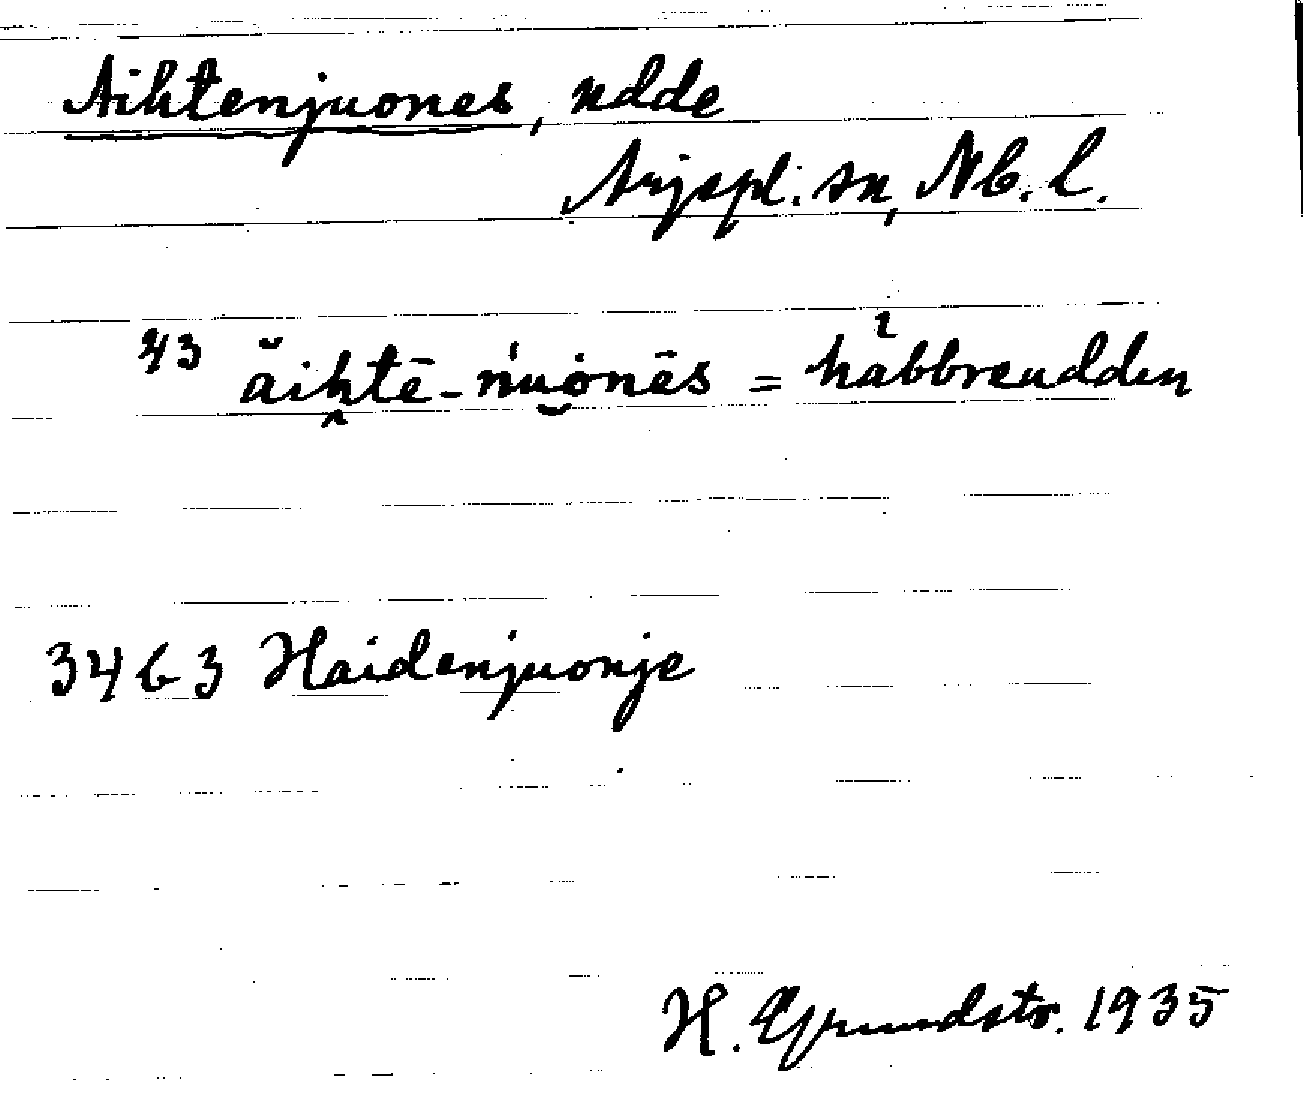 Aihtenjuones, udde
Arjepl. sn, Nb. l.
43 äihtē-ńuo̯nēs = häbbreudden
3463 Haidenjuonje
H. Grundstr. 1935